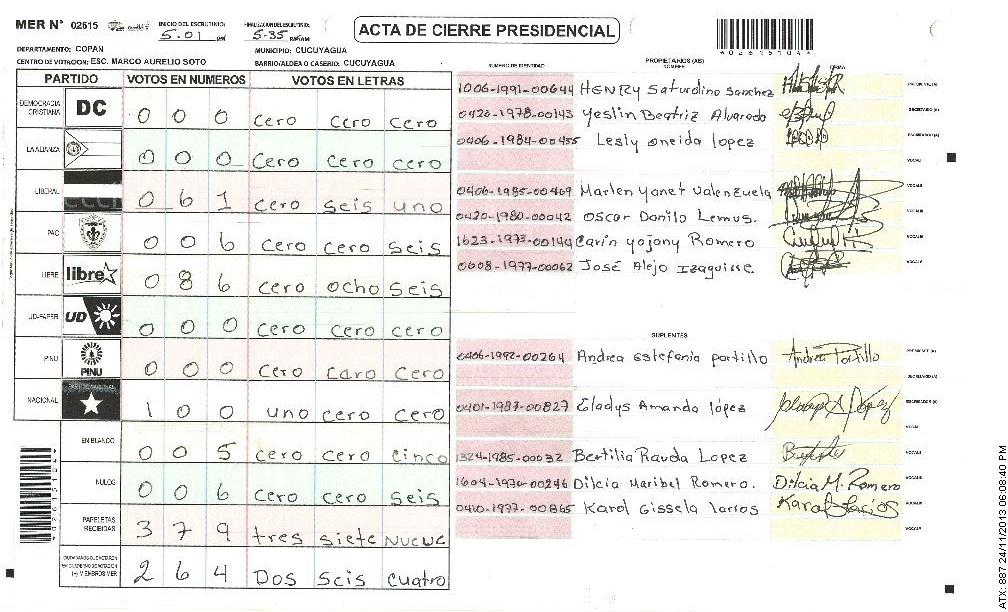 MER N° 02615 INICIO DEL ESCRUTINIO: 5.01 PM FINALIZACION DEL ESCRUTINIO: 5-35 PM/AM ACTA DE CIERRE PRESIDENCIAL
DEPARTAMENTO: COPAN MUNICIPIO: CUCUYAGUA
CENTRO DE VOTACION: ESC. MARCO AURELIO SOTO BARRIO/ALDEA O CASERIO: CUCUYAGUA
PARTIDO VOTOS EN NUMEROS VOTOS EN LETRAS
DEMOCRACIA CRISTIANA DC 0 0 0 cero cero cero
LA ALIANZA 0 0 0 cero cero cero
LIBERAL 0 6 1 cero seis uno
PAC 0 0 6 cero cero seis
LIBRE libre 0 8 6 cero ocho seis
UD-FAPER UD 0 0 0 cero cero cero
PINU PINU 0 0 0 cero caro cero
NACIONAL 1 0 0 uno cero cero
EN BLANCO 0 0 5 cero cero cinco
NULOS 0 0 6 cero cero seis
PAPELETAS RECIBIDAS 3 7 9 tres siete nueve
2 6 4 Dos seis cuatro
NUMERO DE IDENTIDAD PROPIETARIOS (AS) NOMBRE FIRMA
1006-1991-00644 HENRY Saturdino Sanchez
0420-1978-00143 Yeslin Beatriz Alvarado
0406-1984-00455 Lesly oneida lopez
0406-1985-00469 Marlen yanet valenzuela
0420-1980-00042 Oscar Danilo Lemus.
1623-1973-00144 Carin yojany Romero
0608-1977-00062 José Alejo Izaguirre.
SUPLENTES
0406-1992-00264 Andrea estefania portillo Andrea Portillo
0401-1987-00827 Gladys Amanda lópez
1324-1985-00032 Bertilia Rauda Lopez
1604-1970-00246 Dilcia Maribel Romero. Dilcia M. Romero
0410-1977-00865 Karol Gissela larios Karol Larios
4026151044
ATX: 887 24/11/2013 06:08:40 PM